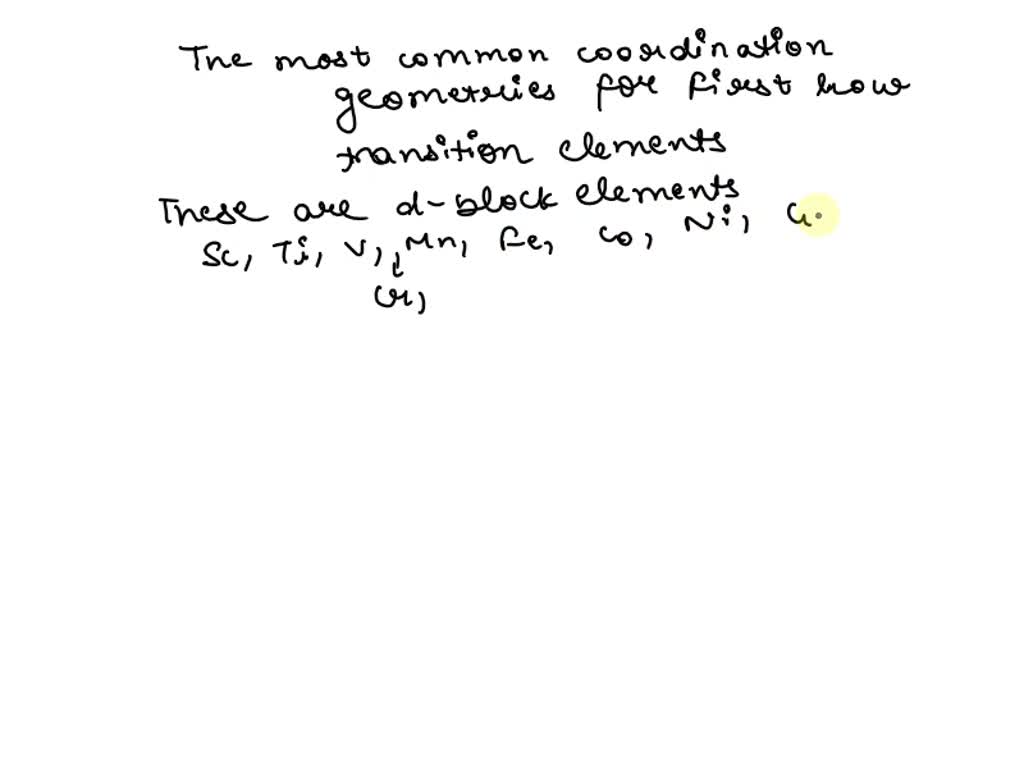 The most common coordination
geometries for first row
transition elements
These are d-block elements
Sc, Ti, V, , Mn, Fe, Co, Ni,
Cr,